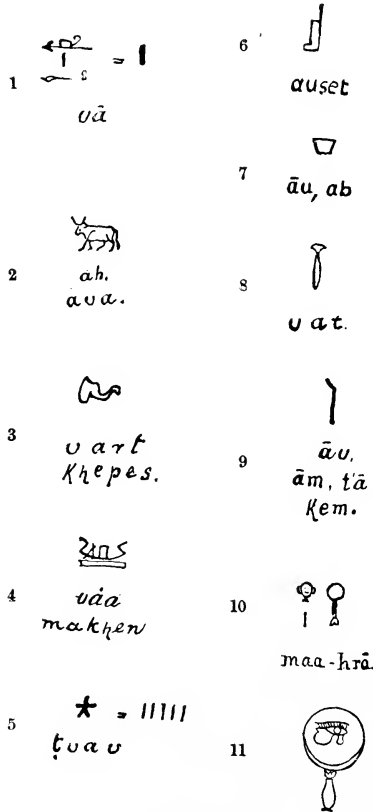 1
= I
uā
2
ah.
aua.
3
uart
Khepes.
4
uáa
makhen
5
* = IIIII
ṭuau
6
auset
7
āu, ab
8
uat.
9
āu,
ām, t'ā
Kem.
10
maa-hrā.
11